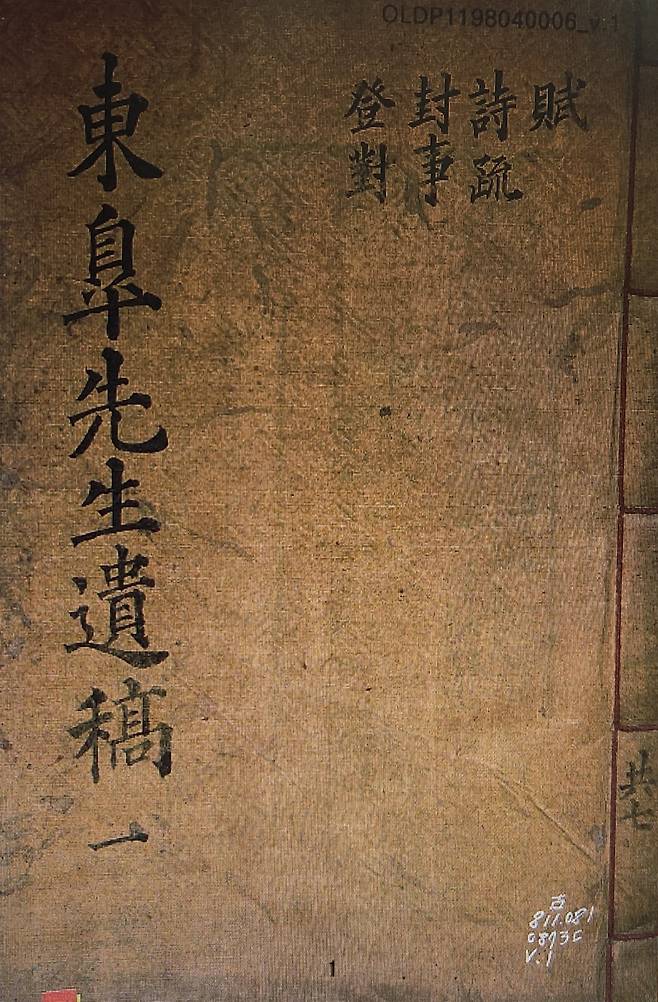 OLDP1198040006_v.1
賦
詩 疏
封事
登對
東皐先生遺稿 一
共七
古
811.081
V.1
1